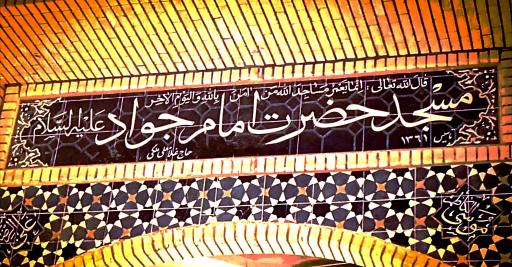 قال الله تعالی: إنما یعمر مساجد الله من آمن بالله والیوم الآخر
مسجد حضرت امام جواد علیه السلام
تاسیس ۱۳۶۱